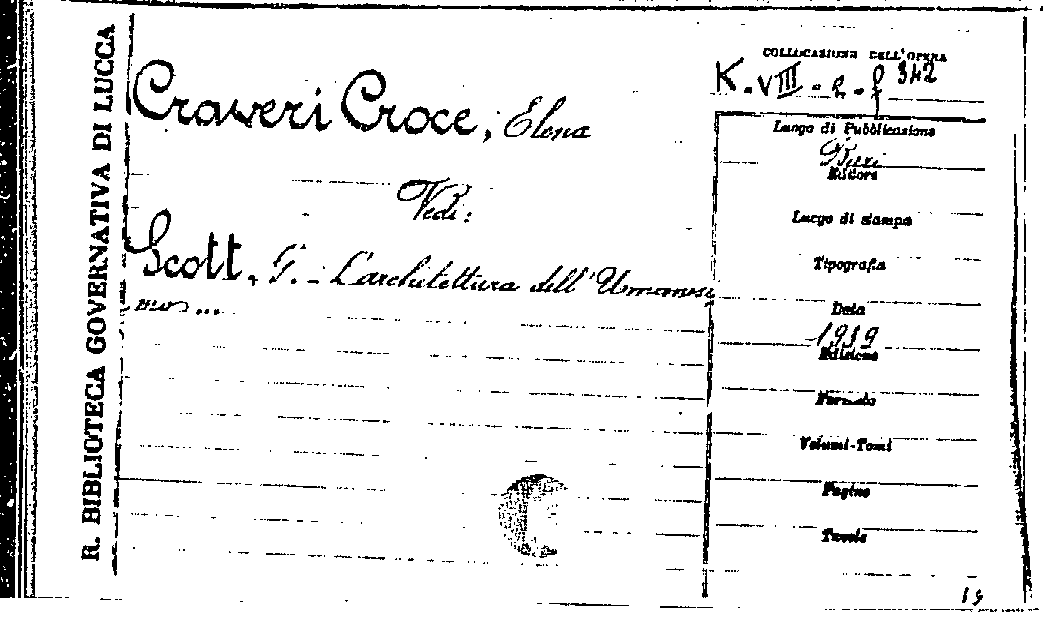 R. BIBLIOTECA GOVERNATIVA DI LUCCA
Craveri Croce, Elena
Vedi:
Scott, G. - L'architettura dell'Umanesi
mo ...
COLLOCAZIONE DELL'OPERA
K. VIII - 2 - f 342
Luogo di Pubblicazione
Bari
Editore
Luogo di stampa
Tipografia
Data
1939
Edizione
Formato
Volumi-Tomi
Pagine
Tavole